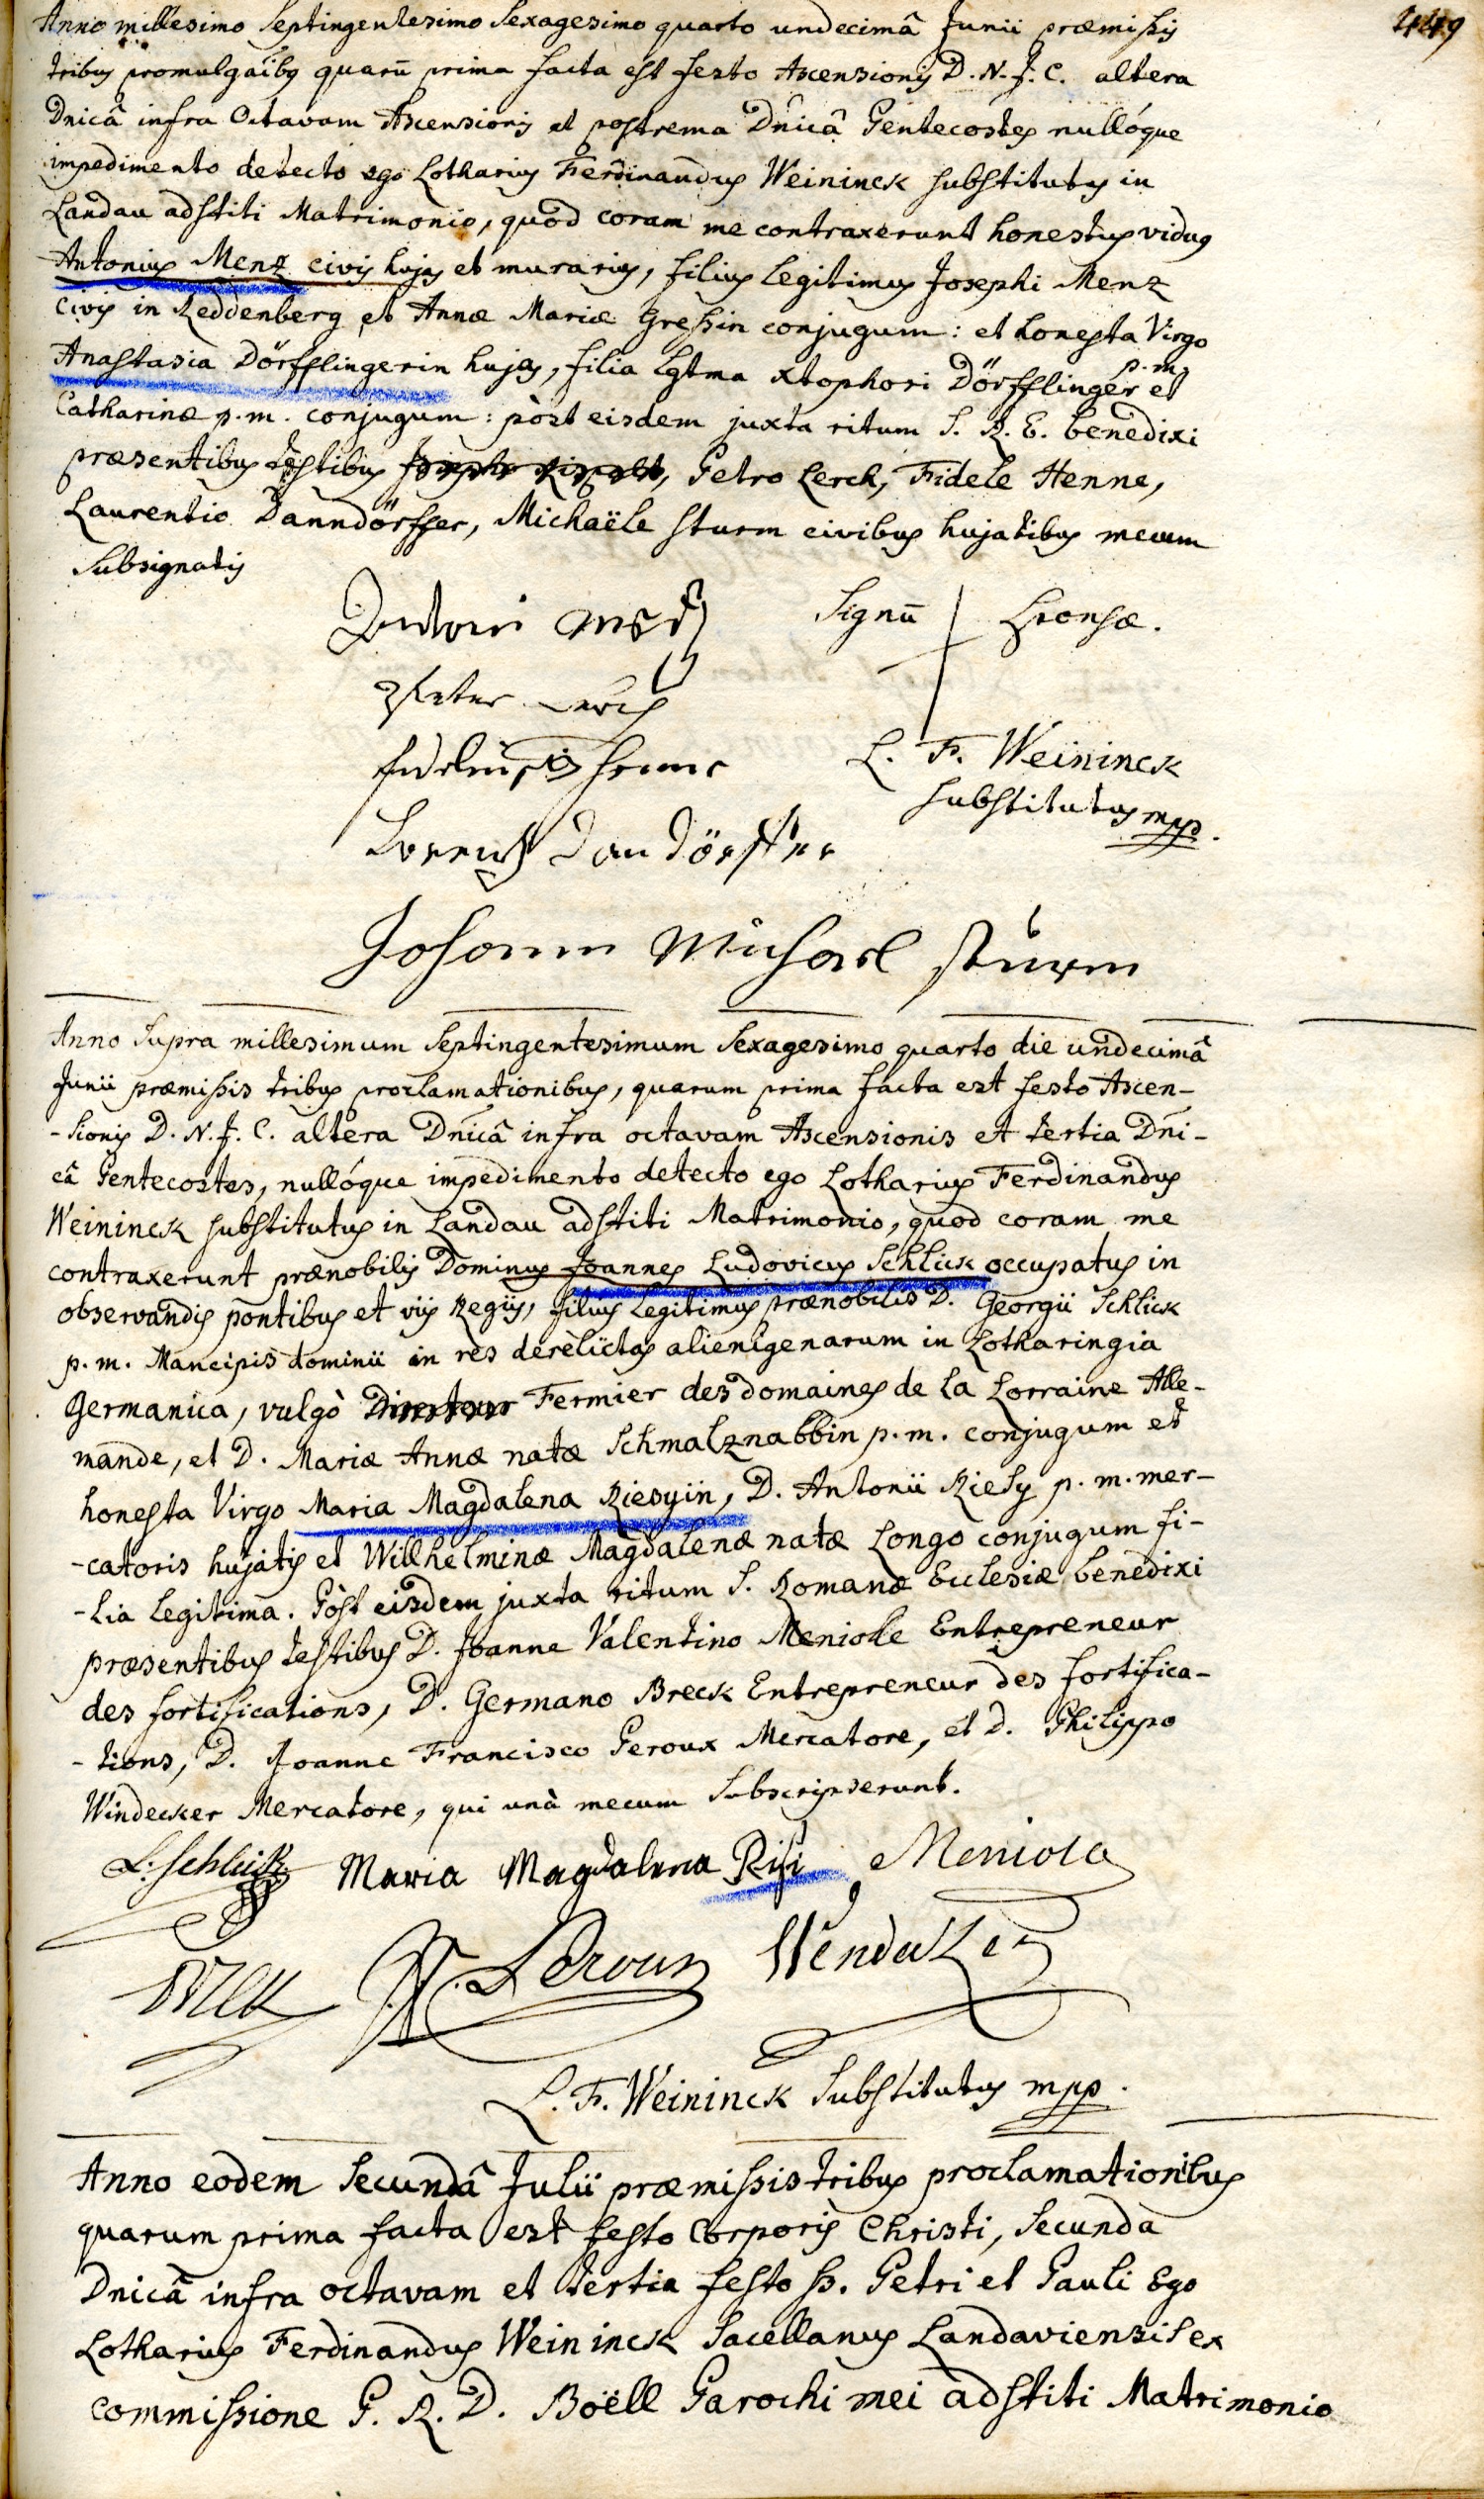 449
Anno millesimo Septingentesimo Sexagesimo quarto undecimâ Junii præmissis
tribus promulgaībg quarū prima facta est festo Ascensionis D. N. J. C. altera
Dnicâ infra Octavam Ascensionis et postrema Dnicâ Pentecostes nullóque
impedimento detecto ego Lotharius Ferdinandus Weininck substitutus in
Landau adstiti Matrimonio, quod coram me contraxerunt honestus viduus
Antonius Menz civis hujas et murarius, filius legitimus Josephi Menz
civis in Reddenberg et Annæ Mariæ Gressin conjugum: et honesta Virgo
Anastasia Dörfflingerin hujas, filia lgtma Xtophori Dörfflinger p. m. et
Catharinæ p. m. conjugum: pòst eisdem juxta ritum S. R. E. benedixi
præsentibus testibus Petro Lerch, Fidele Henne,
Laurentio Danndörffer, Michaële Sturm civibus hujatibus mecum
Subsignatis
Signū Sponsæ.
Peter Lerch
L. F. Weininck
substitutus mpp.
Johann Michael Sturm
Anno Supra millesimum Septingentesimum Sexagesimo quarto die undecimâ
Junii præmissis tribus proclamationibus, quarum prima facta est festo Ascen-
-sionis D. N. J. C. altera Dnicâ infra octavam Ascensionis et tertia Dni-
câ Pentecostes, nullóque impedimento detecto ego Lotharius Ferdinandus
Weininck substitutus in Landau adstiti Matrimonio, quod coram me
contraxerunt prænobilis Dominus Joannes Ludovicus Schlick occupatus in
observandis pontibus et viis Regiis, filius legitimus prænobilis D. Georgii Schlick
p. m. Mancipis dominii in rès derèlictas alienigenarum in Lotharingia
Germanica, vulgò Fermier des domaines de la Lorraine Alle-
mande, et D. Mariæ Annæ natæ Schmalznabbin p. m. conjugum et
honesta Virgo Maria Magdalena Riesyin, D. Antonii Riesy p. m. mer-
-catoris hujatis et Willhelminæ Magdalenæ natæ Longo conjugum fi-
-lia legitima. Pòst eisdem juxta ritum S. Romanæ Ecclesiæ benedixi
præsentibus testibus D. Joanne Valentino Meniolle Entrepreneur
des fortifications, D. Germano Breck Entrepreneur des fortifica-
-tions, D. Joanne Francisco Peroux Mercatore, et D. Philippo
Windecker Mercatore, qui unà mecum Subscripserunt.
L: Schlick Maria Magdalena Risi Meniolle
L. F. Weininck Substitutus mpp.
Anno eodem Secundâ Julii præmissis tribus proclamationibus
quarum prima facta est festo Corporis Christi, Secunda
Dnicâ infra octavam et tertia festo ss. Petri et Pauli Ego
Lotharius Ferdinandus Weininck Sacellanus Landaviensis ex
commissione P. R. D. Boëll Parochi mei adstiti Matrimonio